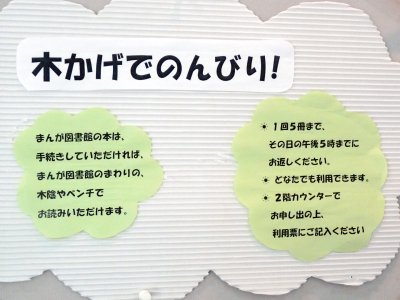 木かげでのんびり!
まんが図書館の本は、
手続きしていただければ、
まんが図書館のまわりの、
木陰やベンチで
お読みいただけます。
☀ 1回5冊まで、
その日の午後5時までに
お返しください。
☀ どなたでも利用できます。
☀ 2階カウンターで
お申し出の上、
利用票にご記入ください